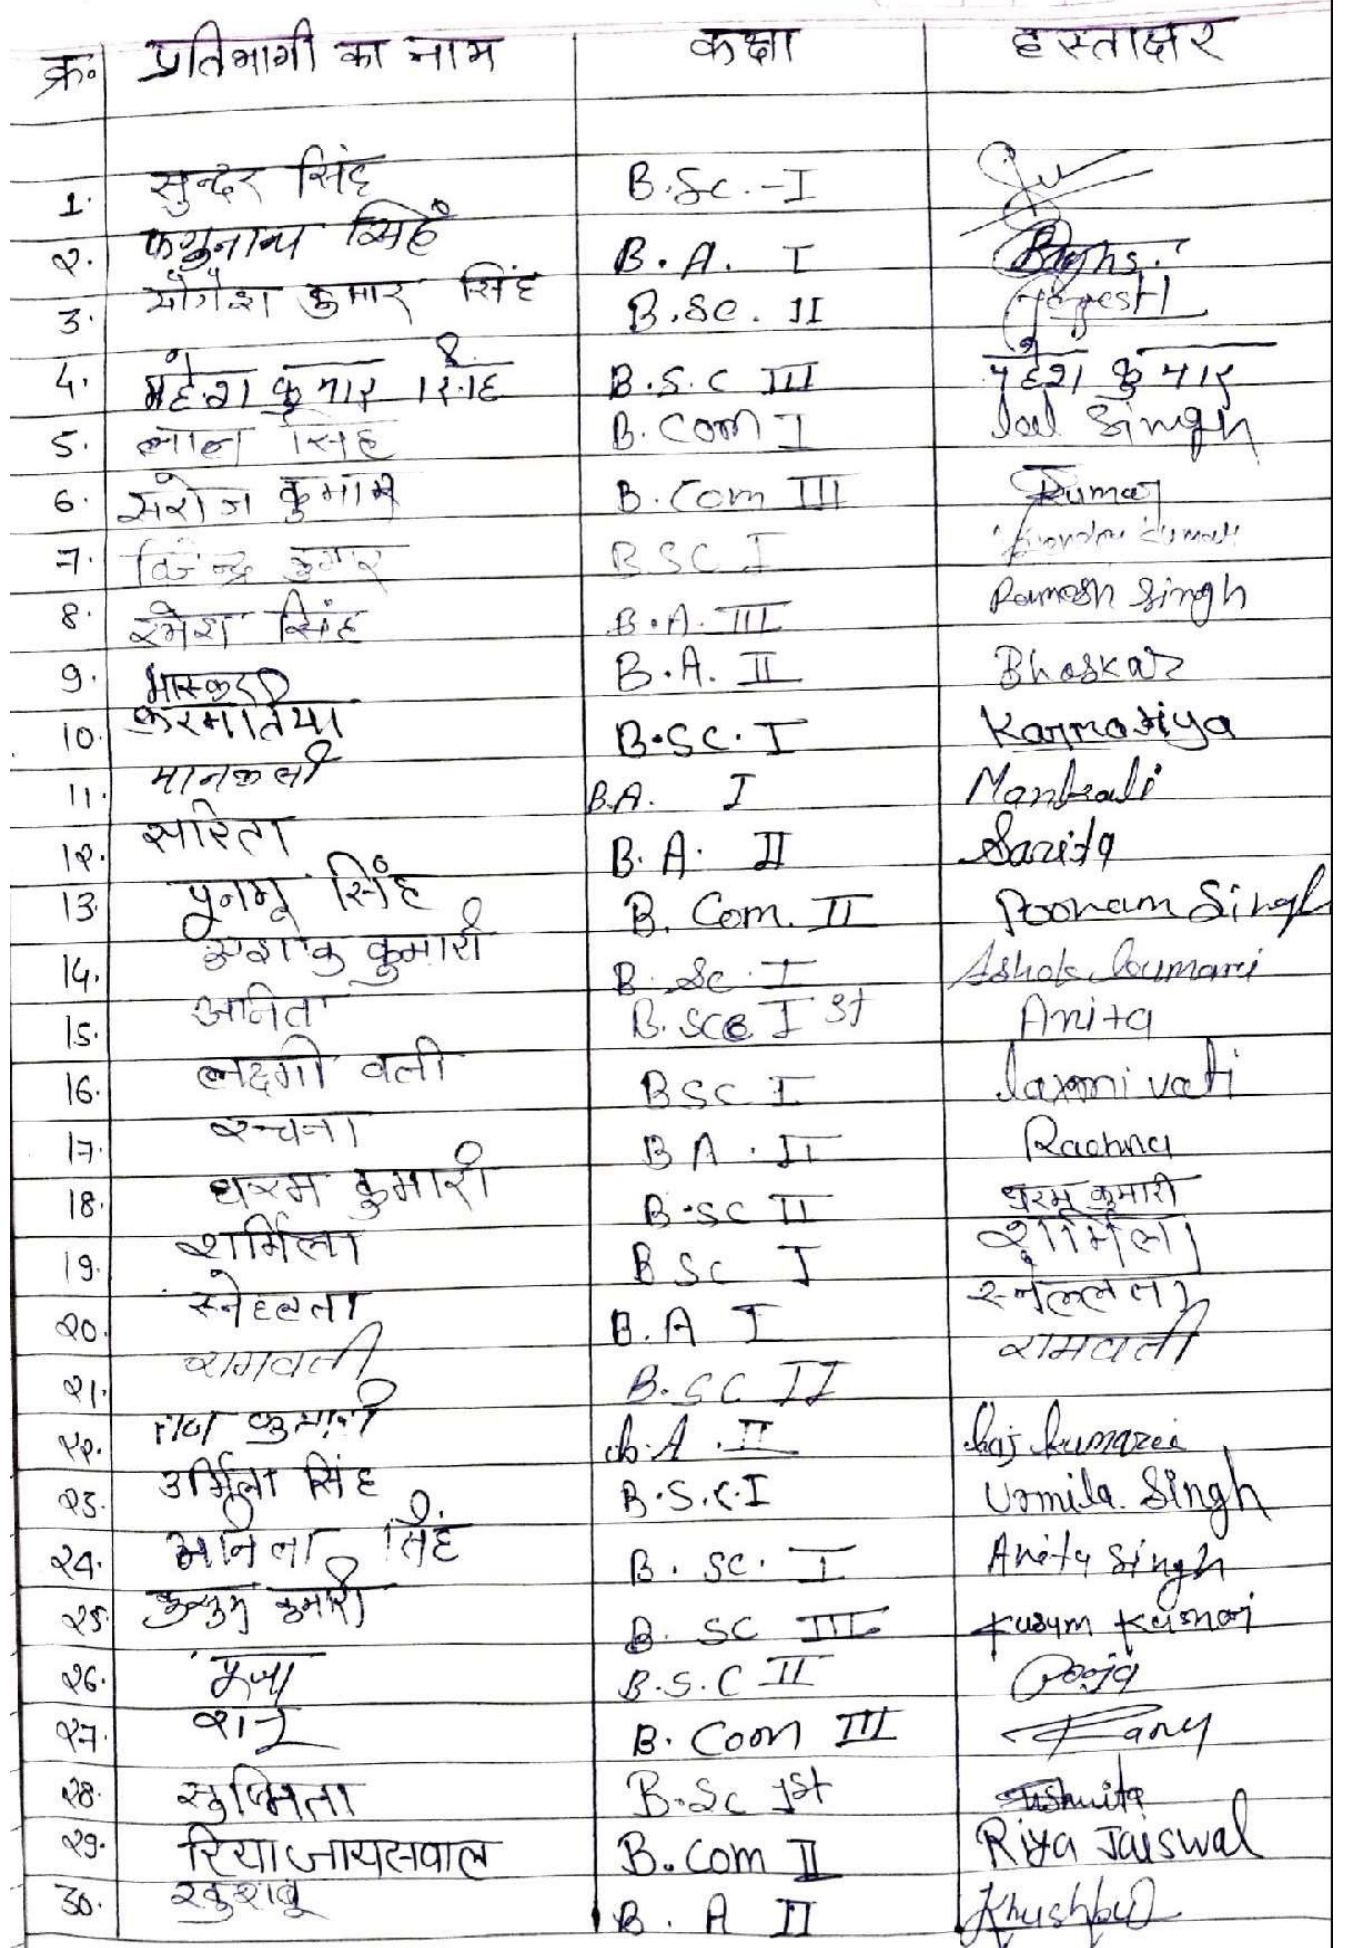 क्र० प्रतिभागी का नाम कक्षा हस्ताक्षर
1. सुन्दर सिंह B.Sc.-I
२. सिहं B.A. I Raghs.
3. योगेश कुमार सिंह B.Sc. II Yogesh
4. महेश कुमार सिंह B.S.C III महेश कुमार
5. लाल सिंह B.Com I lal Singh
6. सरोज कुमार B.Com III Kumar
7. कुमार BSC I Kumar
8. रमेश सिंह B.A. III Ramesh Singh
9. भास्कर B.A. II Bhaskar
10. करमतिया B.SC. I Karmatiya
11. मानकली B.A. I Mankali
1२. सरिता B.A. II Sarita
13. पूनम सिंह B. Com. II Poonam Singh
14. अशोक कुमारी B. Sc. I Ashok kumari
15. अनिता B.SC I st Anita
16. लक्ष्मी वती BSC I laxmi vati
17. रचना B A . II Rachna
18. धरम कुमारी B.SC II धरम कुमारी
19. शर्मिला B Sc I शर्मिला
२0. स्नेहलता B.A I स्नेललता
२1. रामवती B.SC II रामवती
२२. राज कुमारी b.A. II Raj kumari
२3. उर्मिला सिंह B.S.C.I Urmila. Singh
२4. अनिता सिंह B. SC. I Anita Singh
२5 कुसुम कुमारी B. SC III Kusum Kumari
२6. पूजा B.S.C II Pooja
२7. B. Com III Rany
२8. सुष्मिता B.Sc 1st Sushmita
२9. रिया जायसवाल B.Com II Riya Jaiswal
30. खुशबू B. A II Khushbu